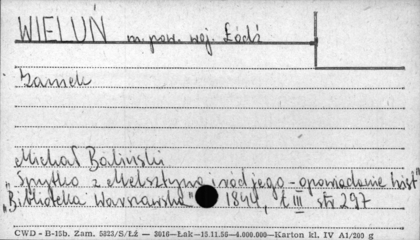 WIELUŃ m. pow. woj. Łódź
Zamek
Michał Baliński
"Spytko z Melsztyna i ród jego - opowiadanie hist"
"Biblioteka Warszawska" 1844, t. III str 297
CWD - B-15b. Zam. 5823/S/Łż — 3016—Łak—15.11.56—4.000.000—Karton kl. IV A1/200 g